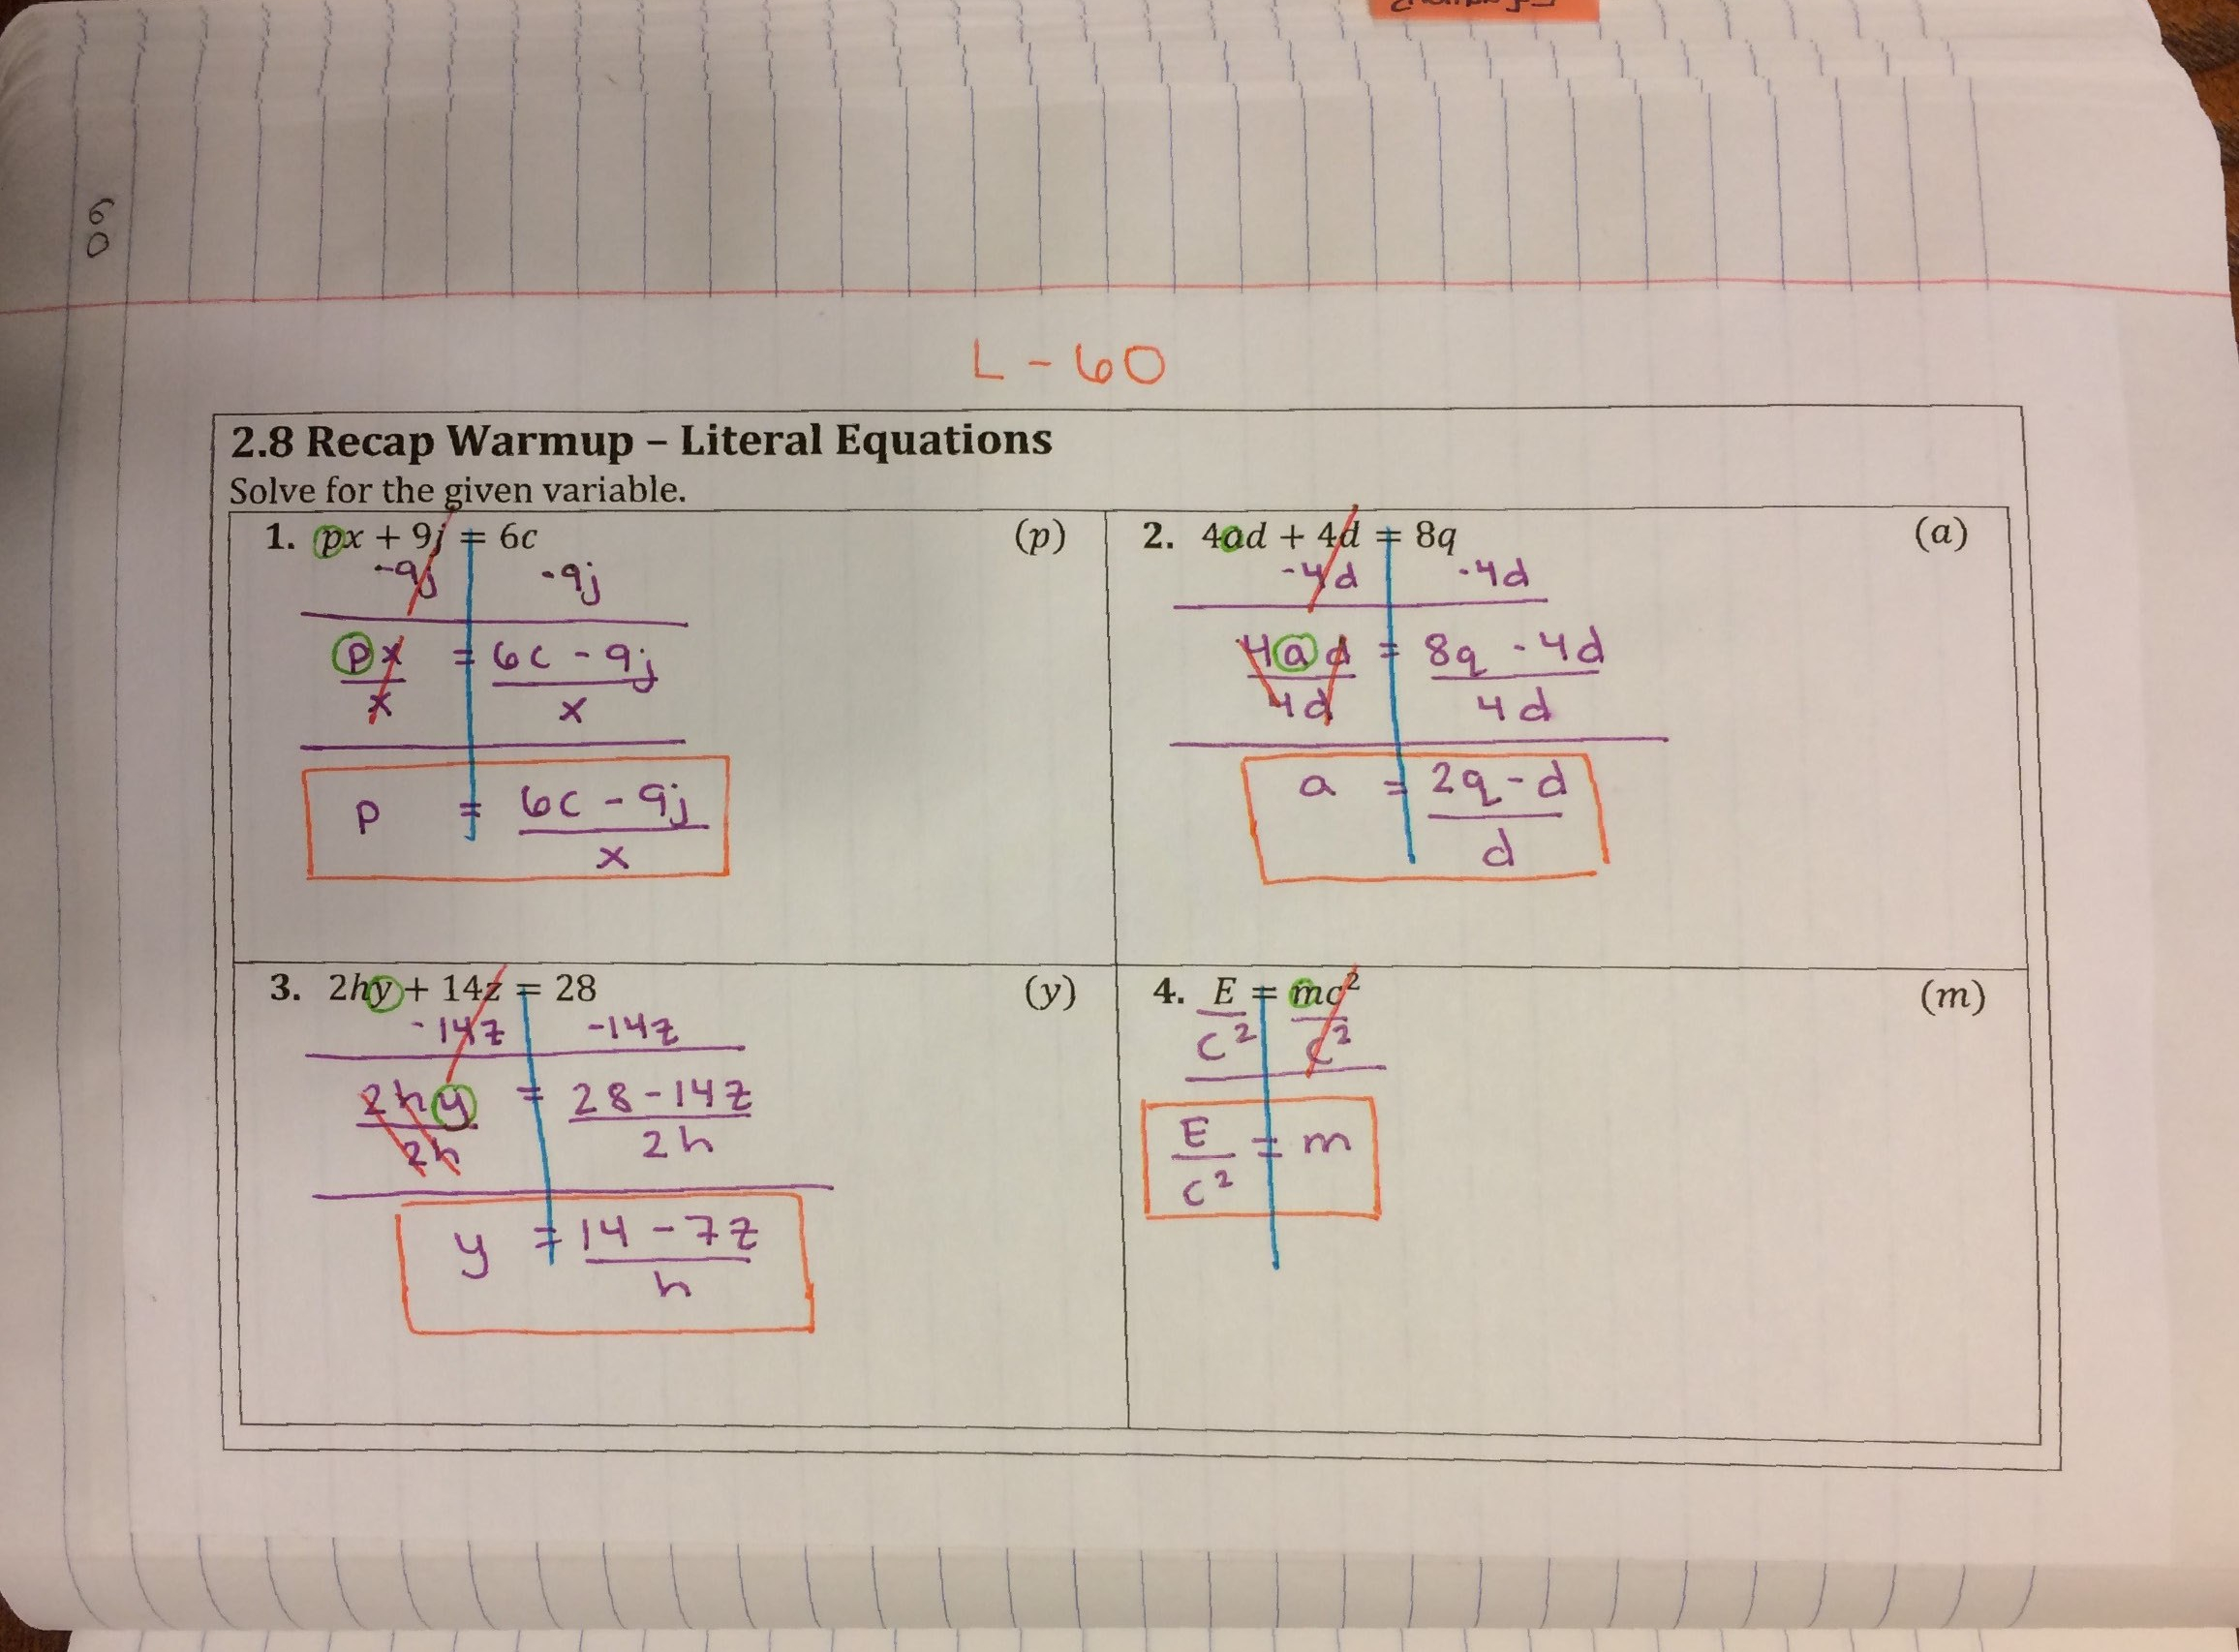 60
L - 60
2.8 Recap Warmup – Literal Equations
Solve for the given variable.
1. px + 9j = 6c (p)
-9j -9j
px = 6c - 9j
x x
p = 6c - 9j
x
2. 4ad + 4d = 8q (a)
-4d -4d
4ad = 8q - 4d
4d 4d
a = 2q - d
d
3. 2hy + 14z = 28 (y)
-14z -14z
2hy = 28 - 14z
2h 2h
y = 14 - 7z
h
4. E = mc² (m)
c² c²
E = m
c²